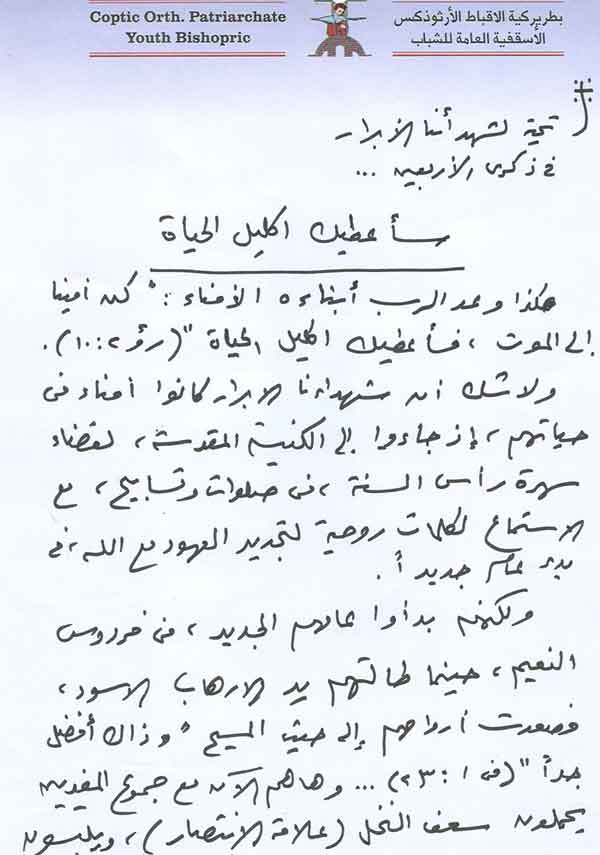 Coptic Orth. Patriarchate
Youth Bishopric
بطريركية الاقباط الأرثوذكس
الأسقفية العامة للشباب
تحية لشهدائنا الأبرار
فى ذكرى الأربعين ...
سأعطيك اكليل الحياة
هكذا وعد الرب أبناءه الأمناء : " كن أمينا
إلى الموت ، فسأعطيك اكليل الحياة " (رؤ ٢ : ١٠) .
ولاشك أن شهداءنا الابرار كانوا أمناء فى
حياتهم ، إذ جاءوا إلى الكنيسة المقدسة ، لقضاء
سهرة رأس السنة ، فى صلوات وتسابيح ، مع
الاستماع لكلمات روحية لتجديد العهود مع الله ، فى
بدء عام جديد .
ولكنهم بدأوا عامهم الجديد ، فى فردوس
النعيم ، حينما طالتهم يد الارهاب الاسود ،
فصعدت أرواحهم إلى حيث المسيح " وذاك أفضل
جداً " (فى ١ : ٢٣) ... وهاهم الآن مع جموع المفديين
يحملون سعف النخل (علامة الانتصار) ، ويلبسون